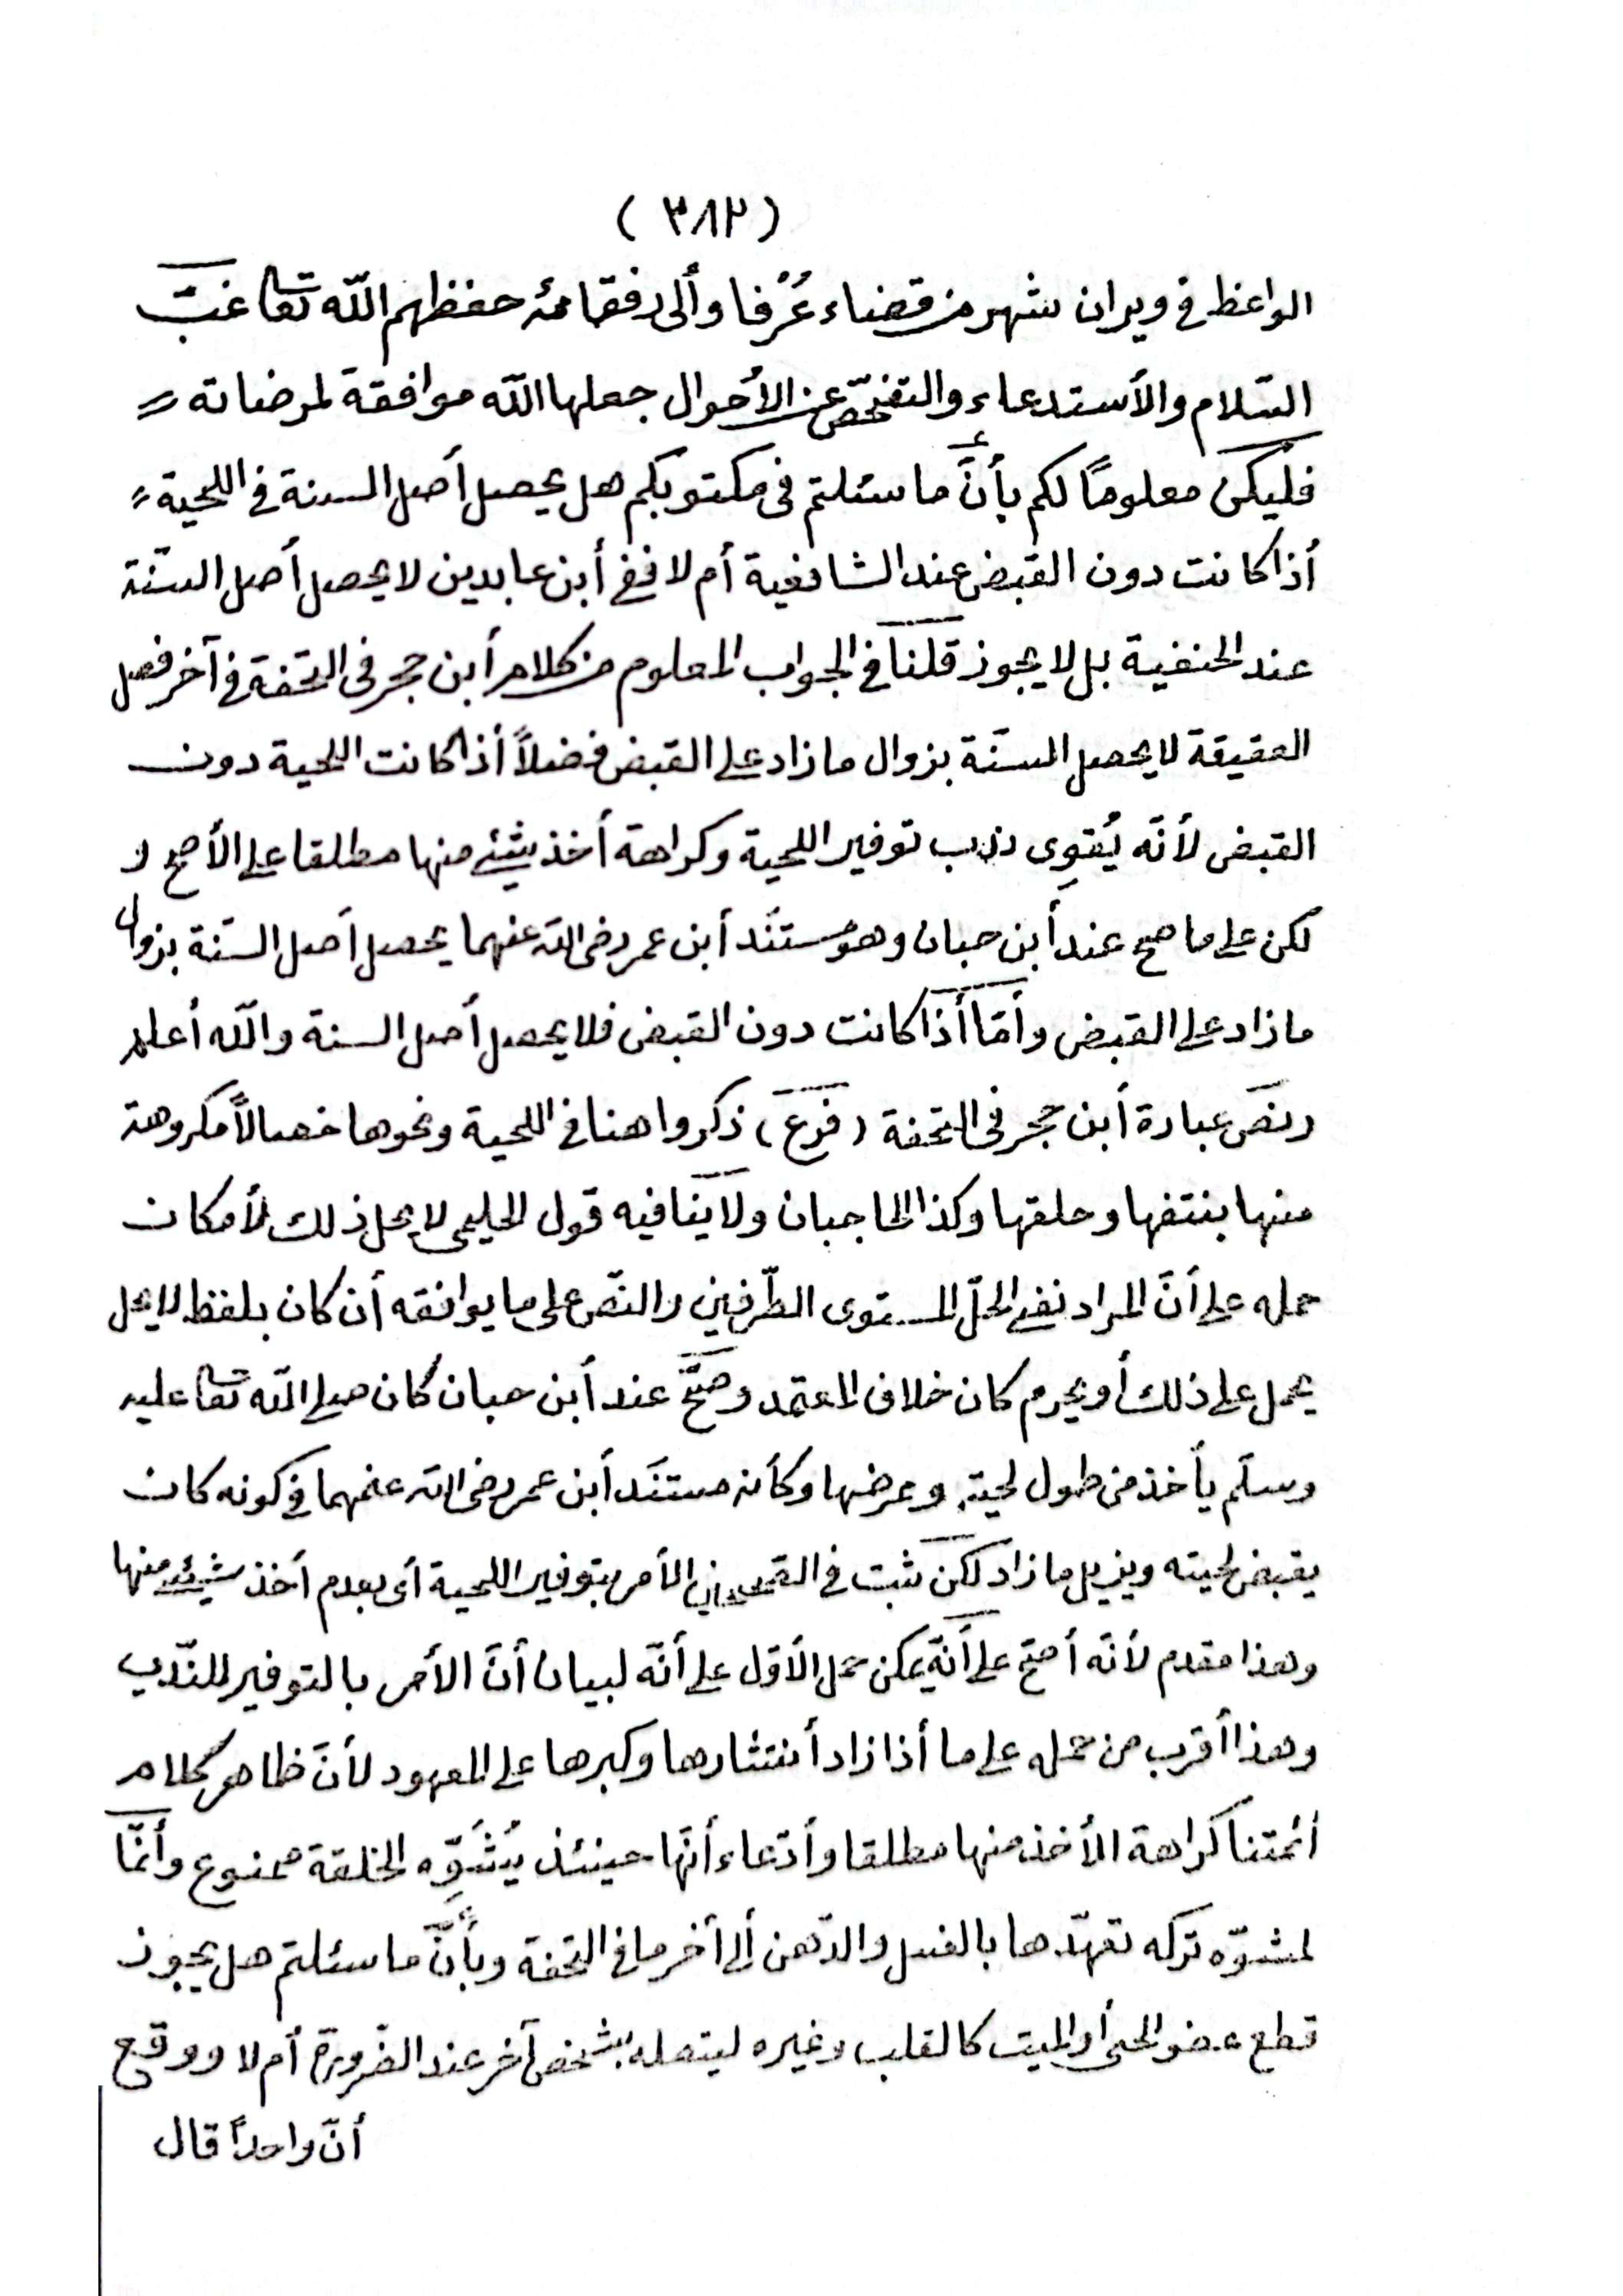 (٣٨٢)
الواعظ في ويران شهر من قضاء عُرْفا وألى رفقائه حفظهم الله تعالى غبّ
السّلام والأستدعاء والتفحّص عن الأحوال جعلها الله موافقة لمرضاته
فليكن معلوماً لكم بأنّ ما سئلتم فى مكتوبكم هل يحصل أصل السنة في اللحية
أذا كانت دون القبض عند الشافعية أم لا ففي أبن عابدين لا يحصل أصل السنّة
عند الحنفية بل لا يجوز قلنا في الجواب المعلوم من كلام أبن حجر فى التحفة في آخر فصل
العقيقة لا يحصل السنّة بزوال ما زاد على القبض فضلاً أذا كانت اللحية دون
القبض لأنّه يُقوِى ندب توفير اللحية وكراهة أخذ شيئ منها مطلقا على الأصح و
لكن على ما صح عند أبن حبان وهو مستنَد أبن عمر رضى الله عنهما يحصل أصل السنّة بزوال
ما زاد على القبض وأمّا أذا كانت دون القبض فلا يحصل أصل السنة والله أعلم
ونصّ عبارة أبن حجر فى التحفة (فرع) ذكروا هنا في اللحية ونحوها خصالاً مكروهة
منها بنتفها وحلقها وكذا الحاجبان ولا ينافيه قول الحليمى لا يحل ذلك لأمكان
حمله على أنّ المراد نفي الحلّ المستوى الطّرفين والنصّ على ما يوافقه أن كان بلفظ لا يحل
يحمل على ذلك أو يحرم كان خلاف المعتمد وصحّ عند أبن حبان كان صلى الله تعالى عليه
وسلّم يأخذ من طول لحيته وعرضها وكأنه مستنَد أبن عمر رضى الله عنهما في كونه كان
يقبض لحيته ويزيل ما زاد لكن ثبت في الصحيحين الأمر بتوفير اللحية أى بعدم أخذ شيئ منها
وهذا مقدم لأنّه أصحّ على أنّه يمكن حمل الأوّل على أنّه لبيان أنّ الأمر بالتوفير للنّدب
وهذا أقرب من حمله على ما أذا زاد أنتشارها وكبرها على المعهود لأنّ ظاهر كلام
أئمتنا كراهة الأخذ منها مطلقا وأدّعاء أنّها حينئذ يُشَوِّه الخلقة ممنوع وأنّما
لمشوّه تركه تعهّدها بالغسل والدّهن ألى أخر ما في التحفة وبأنّ ما سئلتم هل يجوز
قطع عضو الحى أو الميت كالقلب وغيره ليتصله بشخص آخر عند الضّرورة أم لا ووقع
أنّ واحداً قال